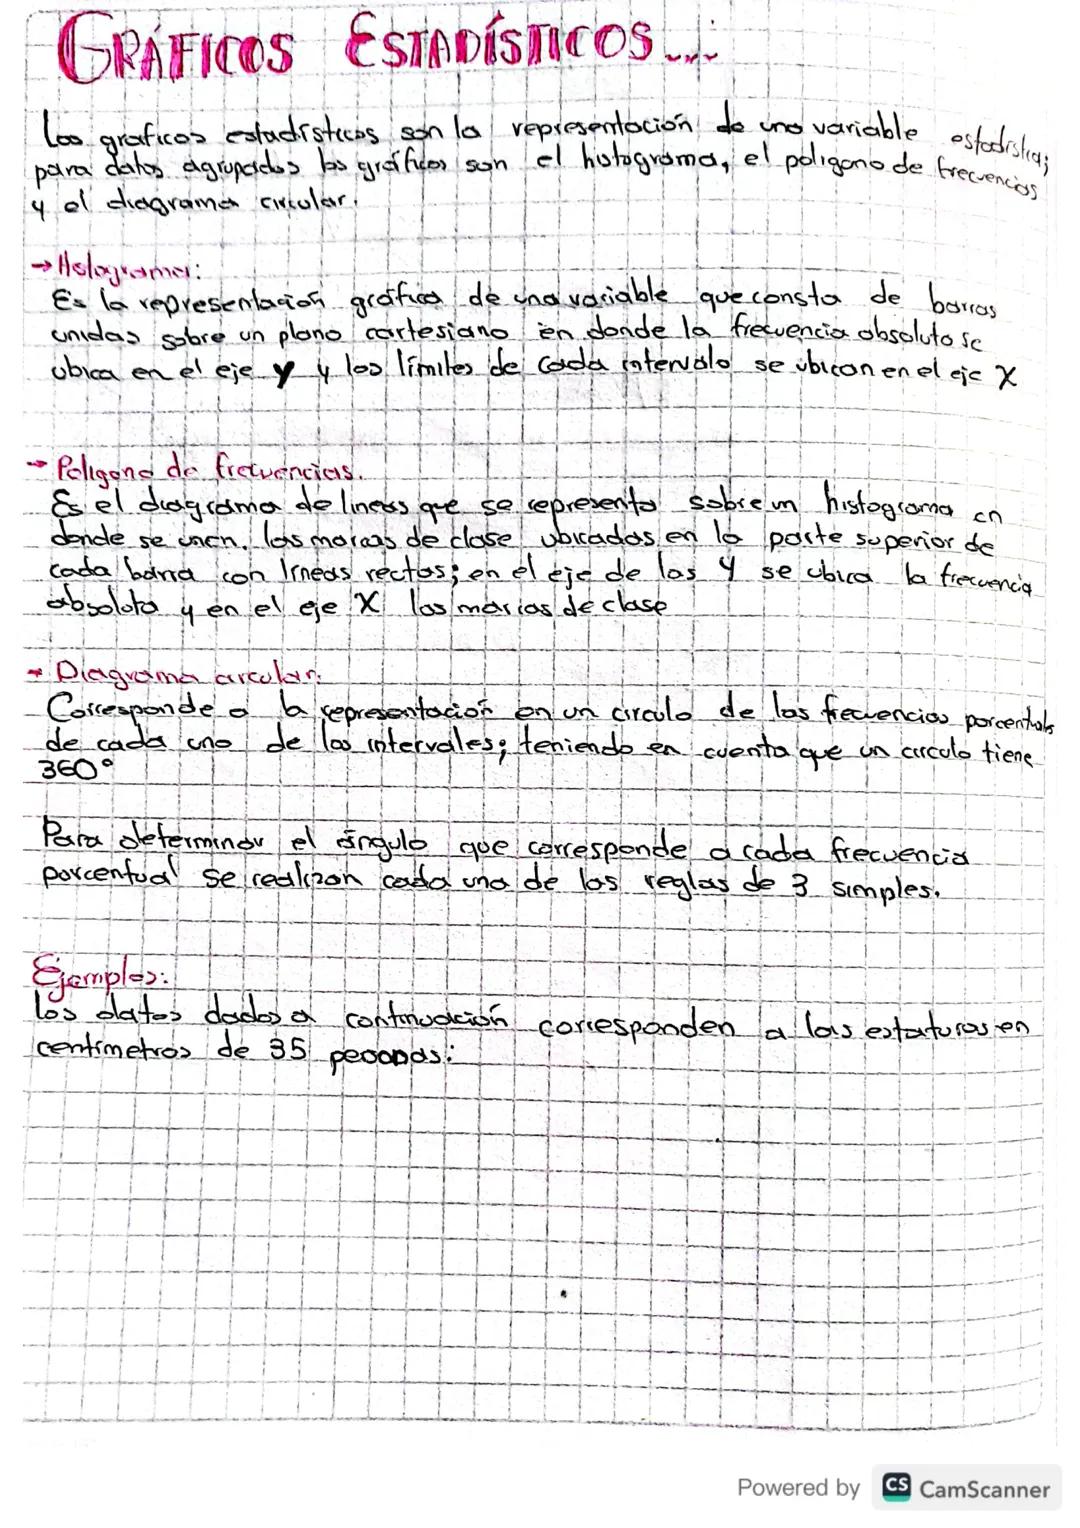 GRÁFICOS ESTADÍSTICOS...
Los graficos estadísticos son la representación de una variable estadística;
para datos agrupados los gráficos son el histograma, el poligono de frecuencias
y el diagrama circular.
→ Histograma:
Es la representación gráfica de una variable que consta de barras
unidas sobre un plano cartesiano en donde la frecuencia absoluta se
ubica en el eje Y y los límites de cada intervalo se ubican en el eje X
→ Poligono de frecuencias.
Es el diagrama de lineas que se representa sobre un histograma en
donde se unen. las marcas de clase ubicadas en la parte superior de
cada barra con líneas rectas; en el eje de las Y se ubica la frecuencia
absoluta y en el eje X las marcas de clase
→ Diagrama circular:
Corresponde a la representación en un circulo de las frecuencias porcentuales
de cada uno de los intervalos; teniendo en cuenta que un circulo tiene
360°
Para determinar el ángulo que corresponde a cada frecuencia
porcentual se realizan cada una de las reglas de 3 simples.
Ejemplos:
los datos dados a continuación corresponden a las estaturas en
centímetros de 35 personas:
Powered by CS CamScanner